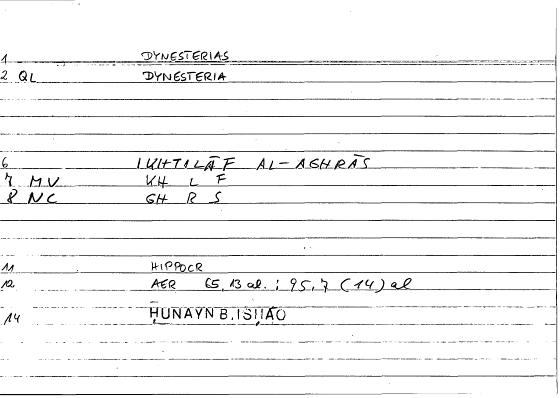 1 DYNESTERIAS
2 QL DYNESTERIA
6 IKHTILĀF AL-AGHRĀS
7 MV KH L F
8 NC GH R S
11 HIPPOCR
12 AER 65, 13 al. ; 95, 7 (14) al
14 ḤUNAYN B. ISḤĀQ